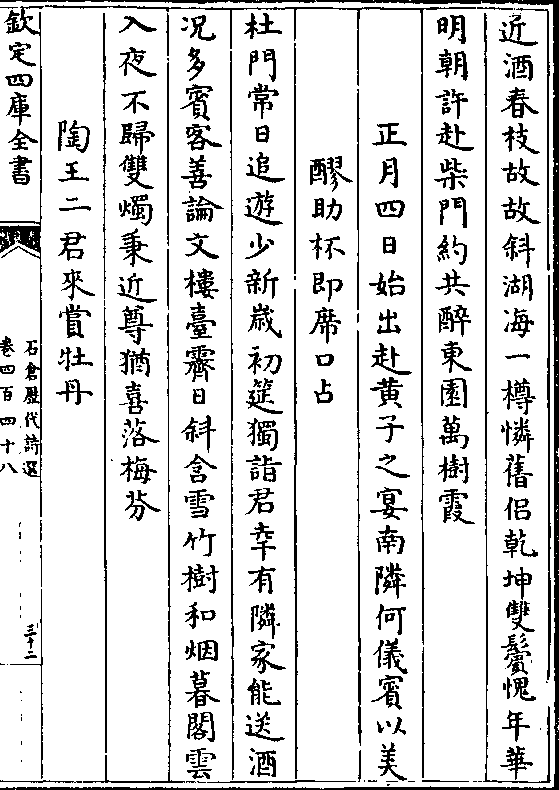 近酒春枝故故斜湖海一樽憐舊侣乾坤雙鬢愧年華
明朝許赴柴門約共醉東園萬樹霞
正月四日始出赴黄子之宴南隣何儀賓以美
醪助杯即席口占
杜門常日追遊少新歳初筵獨詣君幸有隣家能送酒
况多賓客善論文樓臺霽日斜含雪竹樹和烟暮閣雲
入夜不歸雙燭秉近尊猶喜落梅芬
陶王二君來賞牡丹
欽定四庫全書
石倉歴代詩選
卷四百四十八
三十二